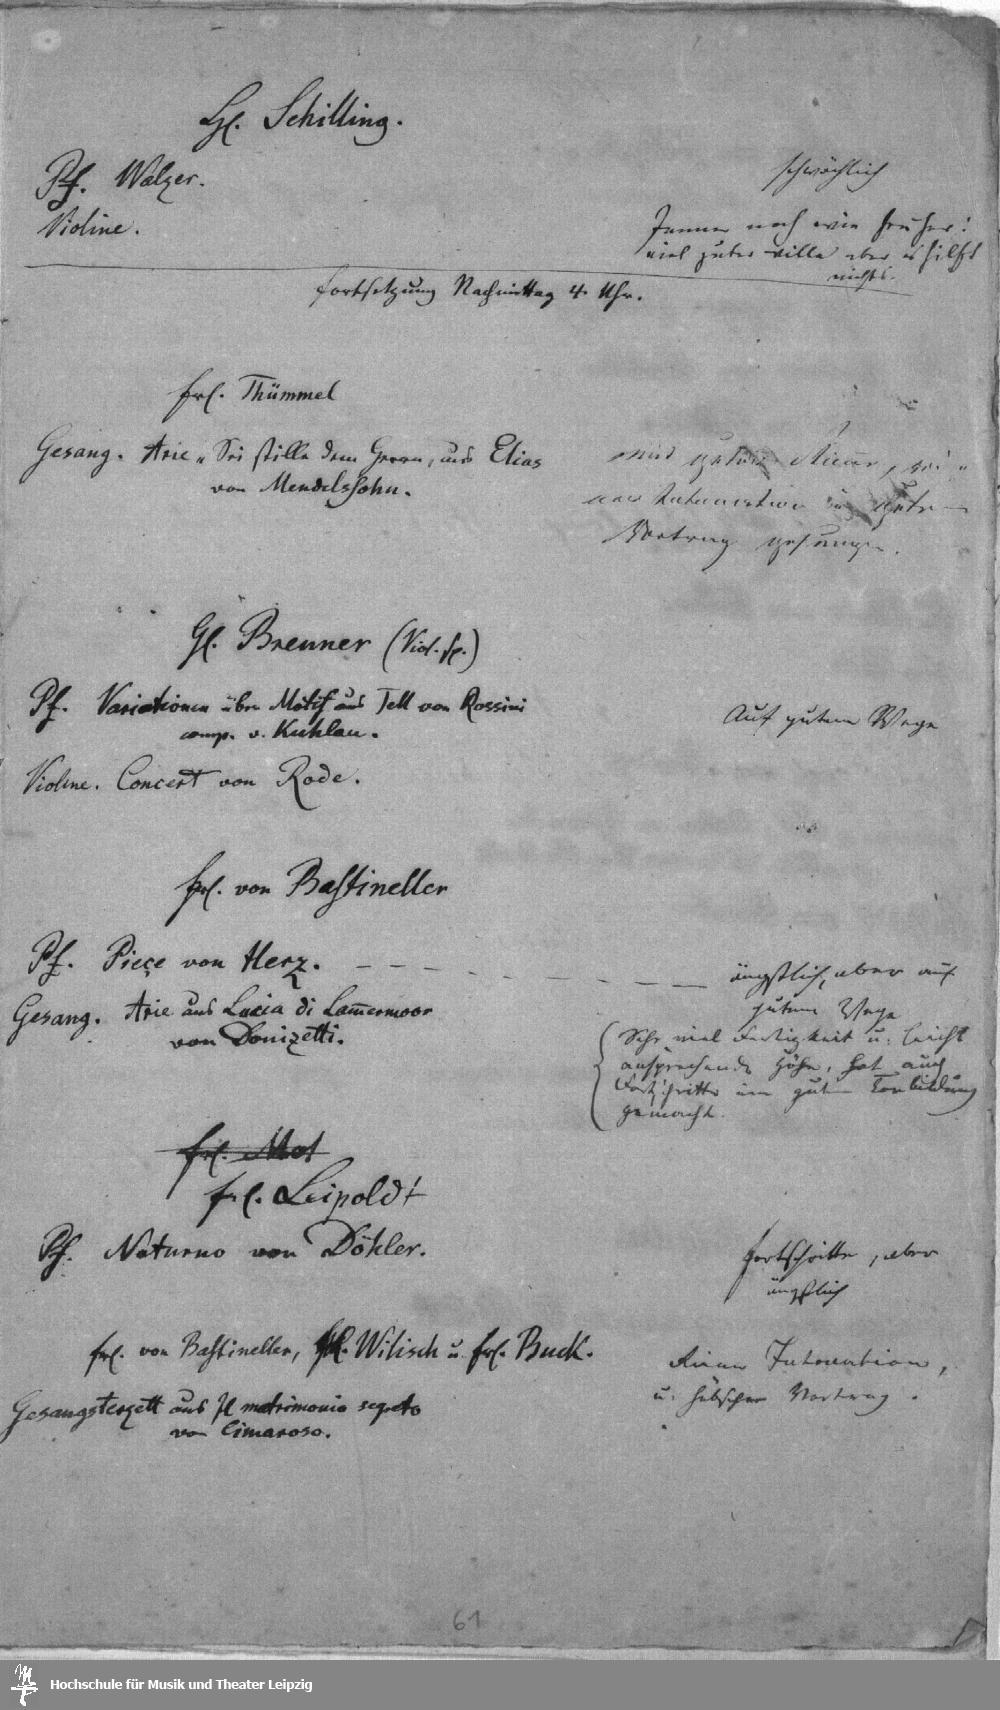 H. Schilling.
Pf. Walzer.
schwächlich
Violine.
Immer noch wie früher:
viel guter Wille aber es hilft
nichts.
Fortsetzung Nachmittag 4 Uhr.
Frl. Thümmel
Gesang. Arie „Sei stille dem Herrn, aus Elias
von Mendelssohn.
mit guter Stimme, rei-
ner Intonation u. gutem
Vortrag gesungen.
H. Brenner (Viol. sp.)
Pf. Variationen über Motif aus Tell von Rossini
comp. v. Kuhlau.
Auf gutem Wege
Violine. Concert von Rode.
Frl. von Bastineller
Pf. Pieçe von Herz. - - - - - - - - -
ängstlich, aber auf
gutem Wege
Gesang. Arie aus Lucia di Lammermoor
von Donizetti.
Sehr viel Fertigkeit u. leicht
ansprechende Höhe, hat auch
Fortschritte im guten Tonbildung
gemacht.
Frl.
Frl. Leipoldt
Pf. Noturno von Döhler.
Fortschritte, aber
ängstlich
Frl. von Bastineller, Frl. Wilisch u. Frl. Buck.
Gesangsterzett aus Il matrimonio segreto
von Cimaroso.
Reine Intonation,
u. hübscher Vortrag.
61
Hochschule für Musik und Theater Leipzig